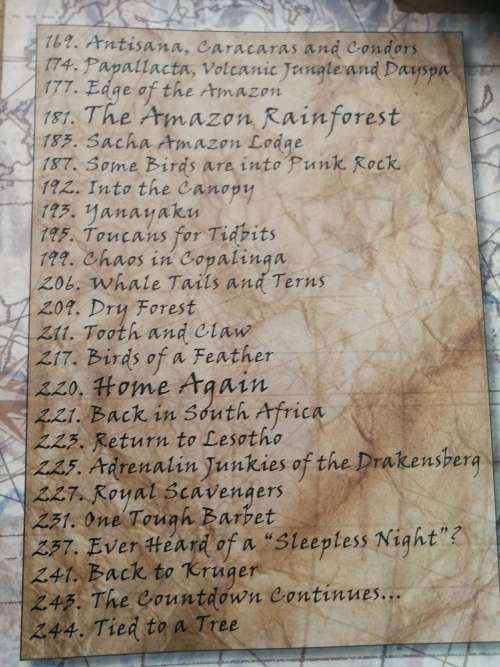 169. Antisana, Caracaras and Condors
174. Papallacta, Volcanic Jungle and Dayspa
177. Edge of the Amazon
181. The Amazon Rainforest
183. Sacha Amazon Lodge
187. Some Birds are into Punk Rock
192. Into the Canopy
193. Yanayaku
195. Toucans for Tidbits
199. Chaos in Copalinga
206. Whale Tails and Terns
209. Dry Forest
211. Tooth and Claw
217. Birds of a Feather
220. Home Again
221. Back in South Africa
223. Return to Lesotho
225. Adrenalin Junkies of the Drakensberg
227. Royal Scavengers
231. One Tough Barbet
237. Ever Heard of a "Sleepless Night"?
241. Back to Kruger
243. The Countdown Continues...
244. Tied to a Tree